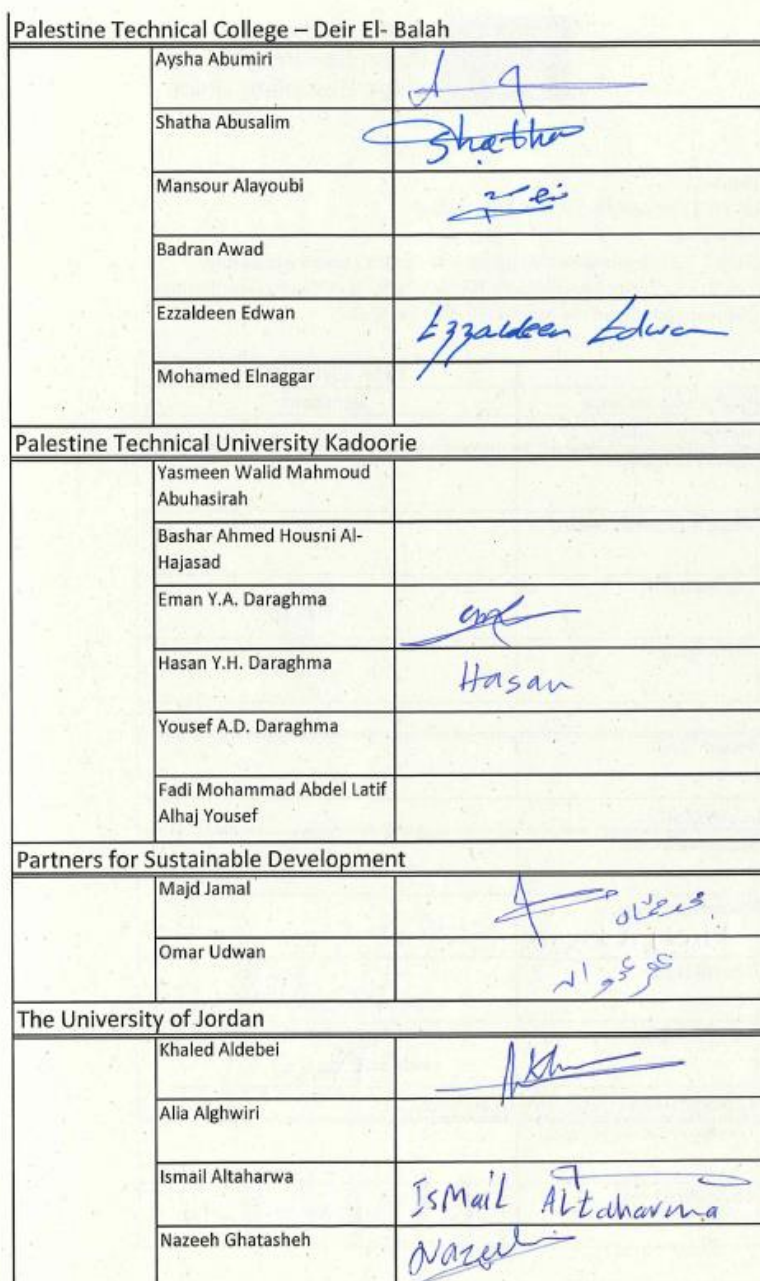 Palestine Technical College – Deir El- Balah
Aysha Abumiri
Shatha Abusalim Shatha
Mansour Alayoubi
Badran Awad
Ezzaldeen Edwan Ezzaldeen Edwan
Mohamed Elnaggar
Palestine Technical University Kadoorie
Yasmeen Walid Mahmoud
Abuhasirah
Bashar Ahmed Housni Al-
Hajasad
Eman Y.A. Daraghma
Hasan Y.H. Daraghma Hasan
Yousef A.D. Daraghma
Fadi Mohammad Abdel Latif
Alhaj Yousef
Partners for Sustainable Development
Majd Jamal
Omar Udwan
The University of Jordan
Khaled Aldebei
Alia Alghwiri
Ismail Altaharwa IsMail Altaharwa
Nazeeh Ghatasheh